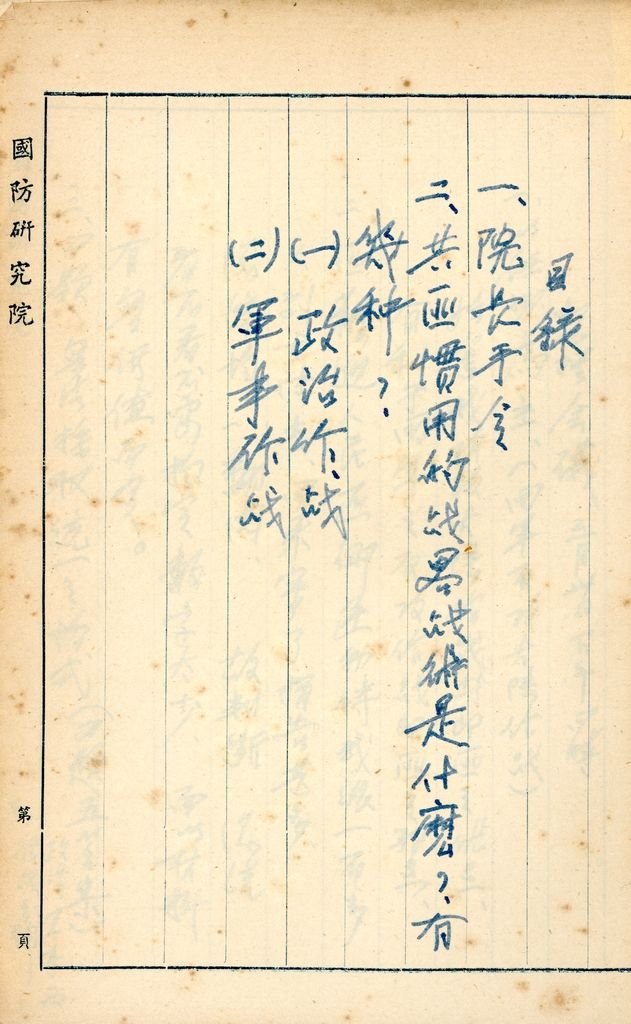 目錄
一、院長手令
二、共匪慣用的战畧战術是什麽？有
幾种？
(一)政治作战
(二)軍事作战
國防研究院
第 頁